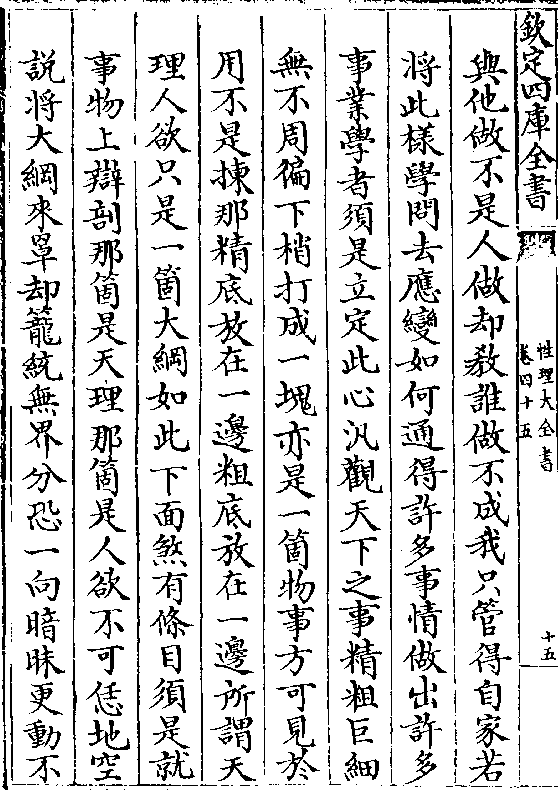 欽定四庫全書
性理大全書
卷四十五
十五
與他做不是人做却教誰做不成我只管得自家若
將此樣學問去應變如何通得許多事情做出許多
事業學者須是立定此心汎觀天下之事精粗巨細
無不周徧下梢打成一塊亦是一箇物事方可見於
用不是揀那精底放在一邊粗底放在一邊所謂天
理人欲只是一箇大綱如此下面煞有條目須是就
事物上辯剖那箇是天理那箇是人欲不可恁地空
說將大綱來罩却籠統無界分恐一向暗昧更動不